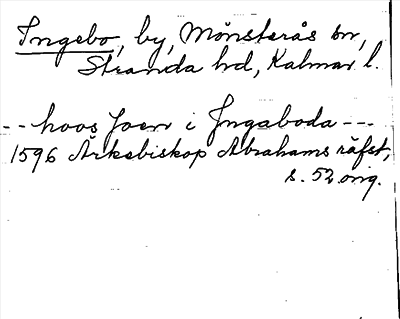 Ingebo, by, Mönsterås sn,
Stranda hd, Kalmar l.
-- hoos Joen i Ingaboda ---
1596 Ärkebiskop Abrahams räfst,
s. 52 orig.